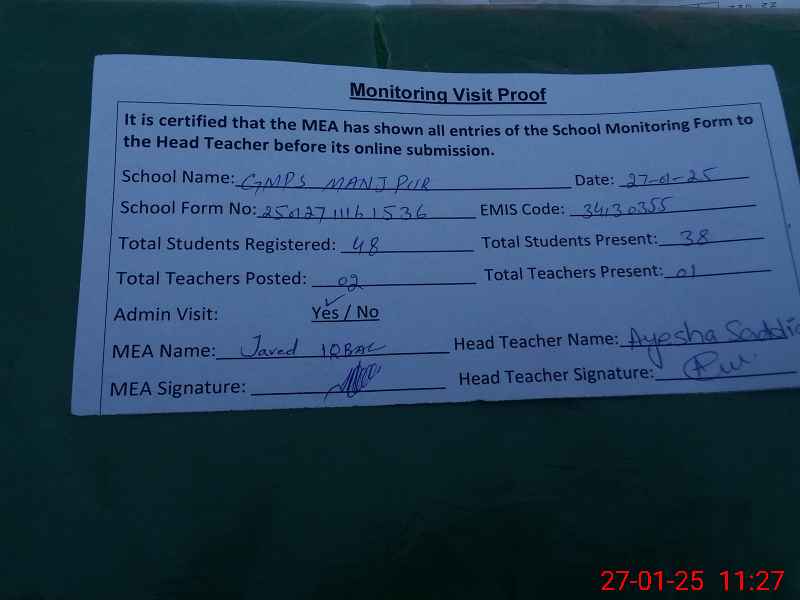 Monitoring Visit Proof
It is certified that the MEA has shown all entries of the School Monitoring Form to
the Head Teacher before its online submission.
School Name: GMPS MANJPUR Date: 27-01-25
School Form No: 2501271116 1536 EMIS Code: 34130355
Total Students Registered: 48 Total Students Present: 38
Total Teachers Posted: 02 Total Teachers Present: 01
Admin Visit: Yes / No
MEA Name: Javed IQBAL Head Teacher Name: Ayesha
MEA Signature: Head Teacher Signature:
27-01-25 11:27